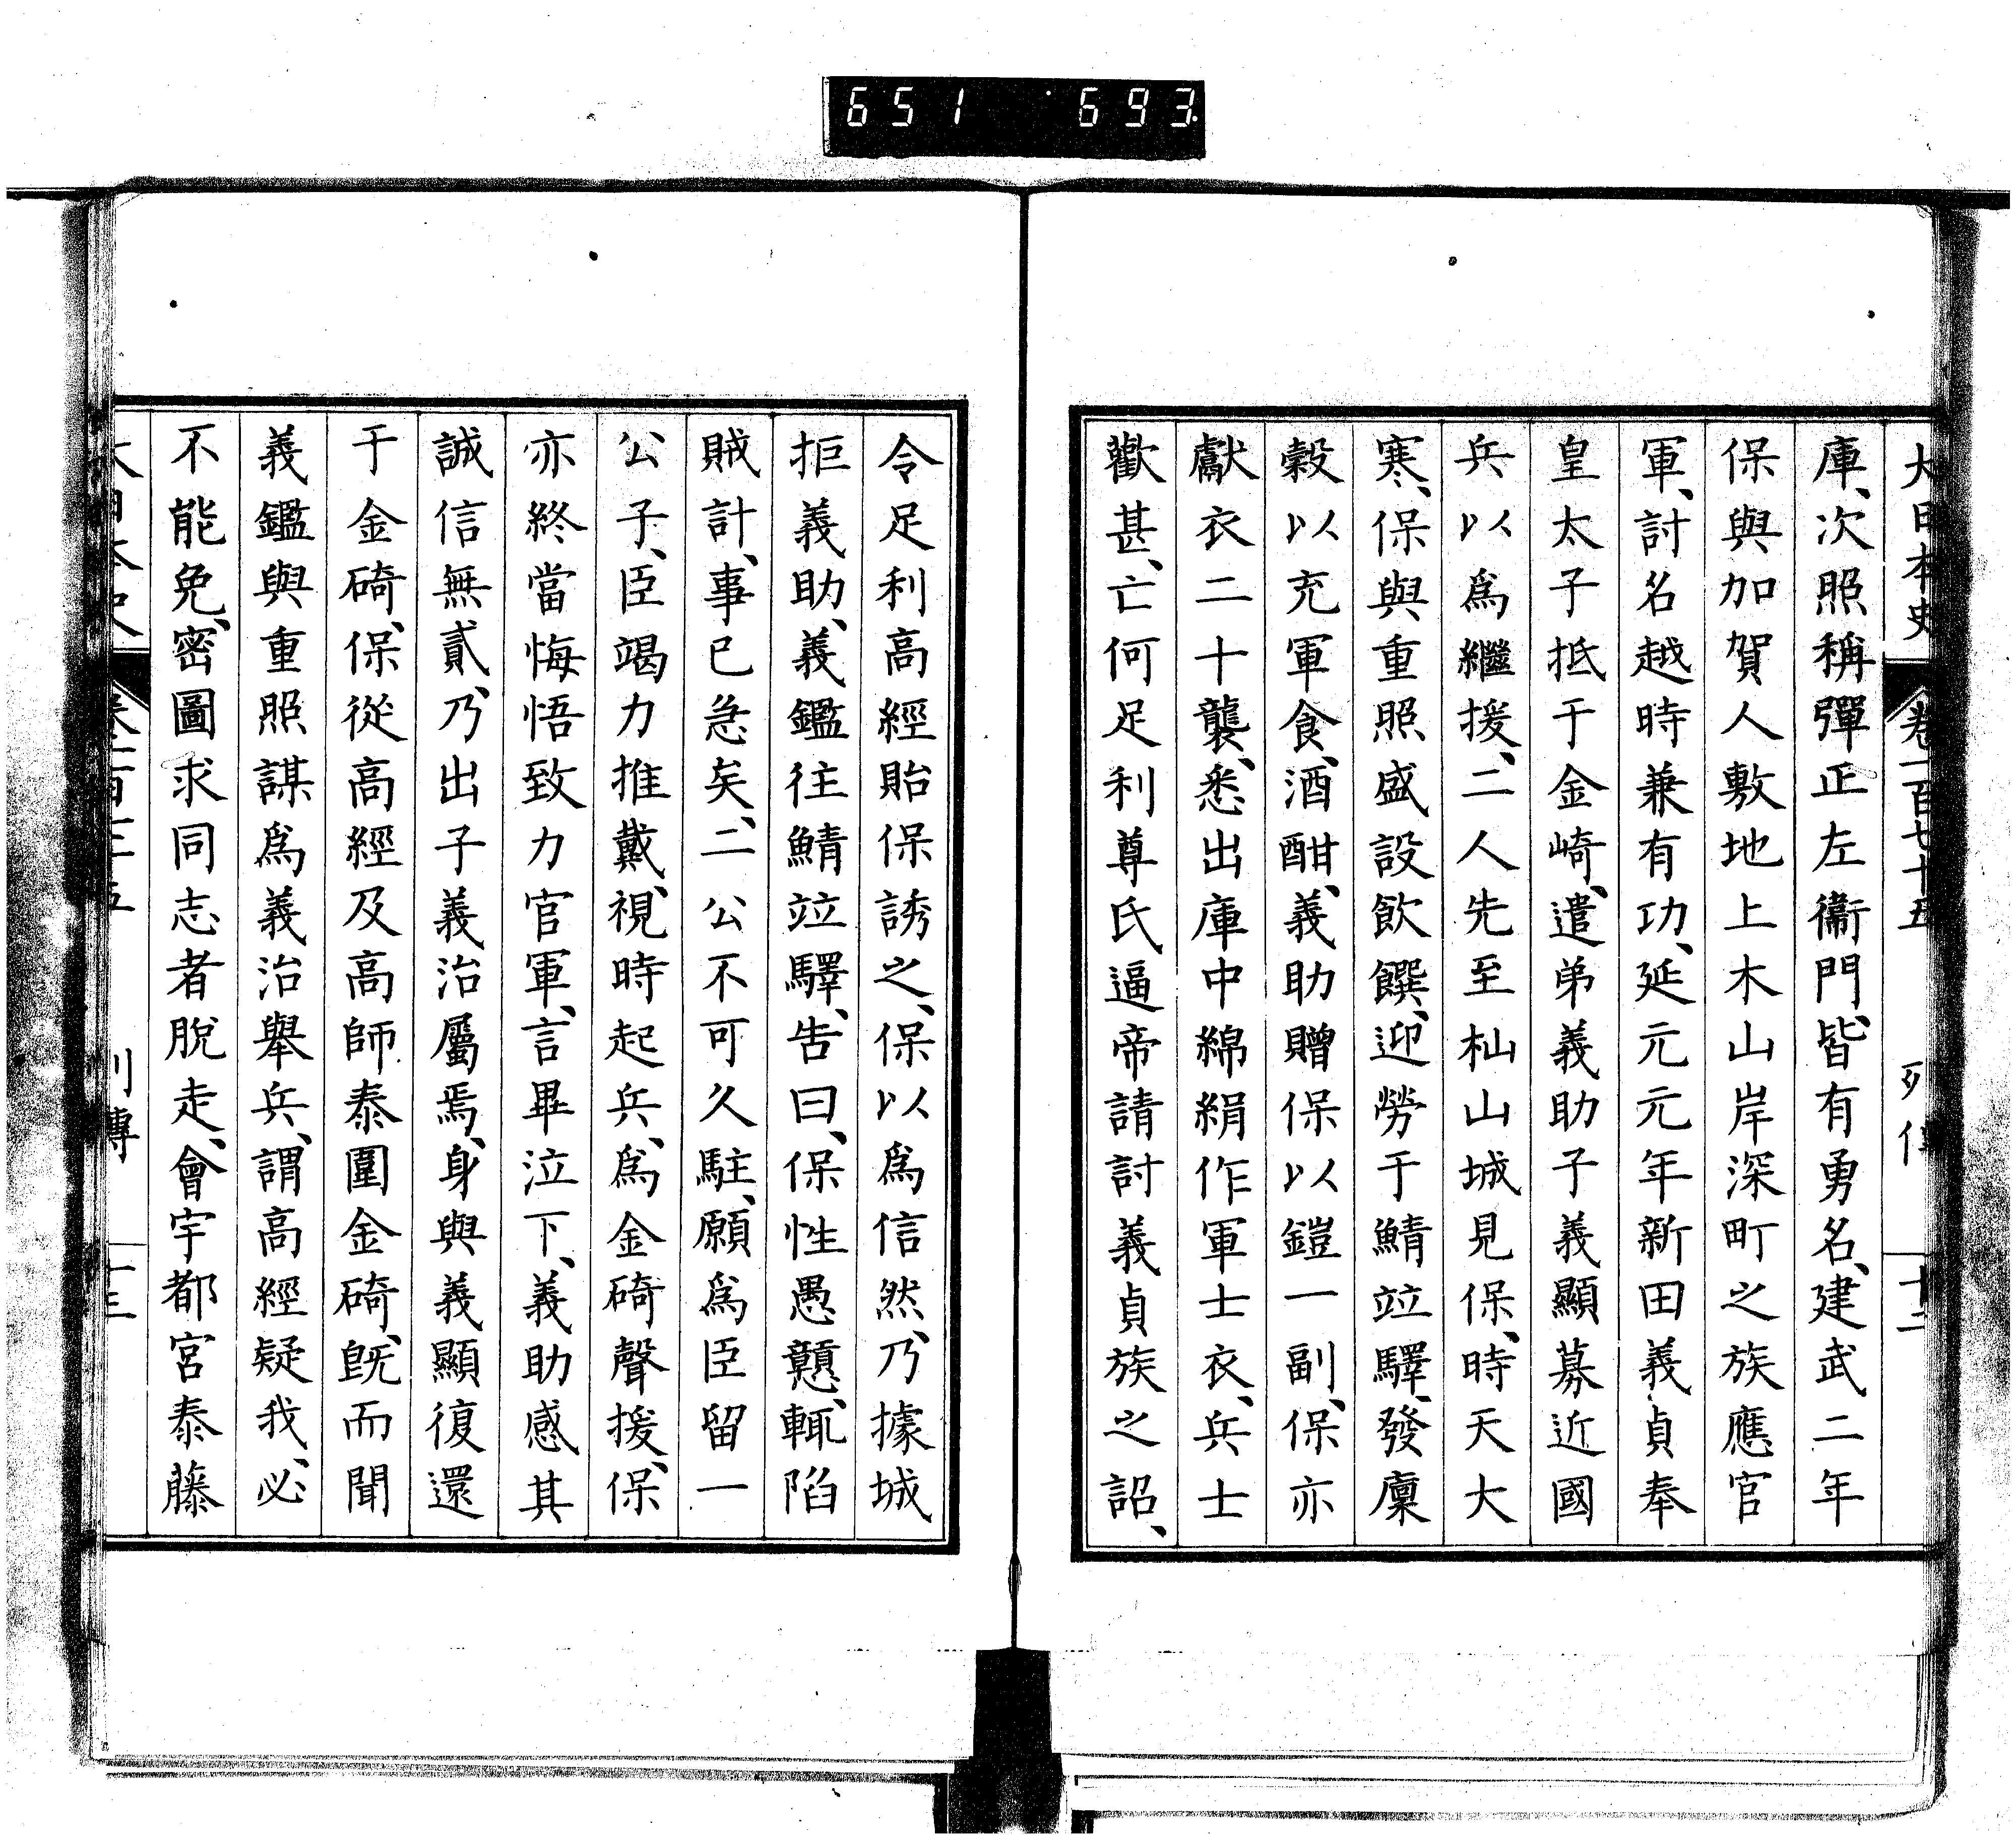 651 693
大日本史 卷一百七十五 列傳 十二
庫、次照稱彈正左衞門、皆有勇名、建武二年
保與加賀人敷地上木山岸深町之族應官
軍、討名越時兼有功、延元元年新田義貞奉
皇太子抵于金崎、遣弟義助子義顯募近國
兵以爲繼援、二人先至杣山城見保、時天大
寒、保與重照盛設飮饌、迎勞于鯖竝驛、發廩
穀以充軍食、酒酣、義助贈保以鎧一副、保亦
獻衣二十襲、悉出庫中綿絹作軍士衣、兵士
歡甚、亡何足利尊氏逼帝請討義貞族之詔、
令足利高經貽保誘之、保以爲信然、乃據城
拒義助、義鑑往鯖竝驛、告曰、保性愚戇、輒陷
賊計、事已急矣、二公不可久駐、願爲臣留一
公子、臣竭力推戴、視時起兵、爲金碕聲援、保
亦終當悔悟致力官軍、言畢泣下、義助感其
誠信無貳、乃出子義治屬焉、身與義顯復還
于金碕、保從高經及高師泰圍金碕、旣而聞
義鑑與重照謀爲義治舉兵、謂高經疑我、必
不能免、密圖求同志者脫走、會宇都宮泰藤
大日本史 卷一百七十五 列傳 十三